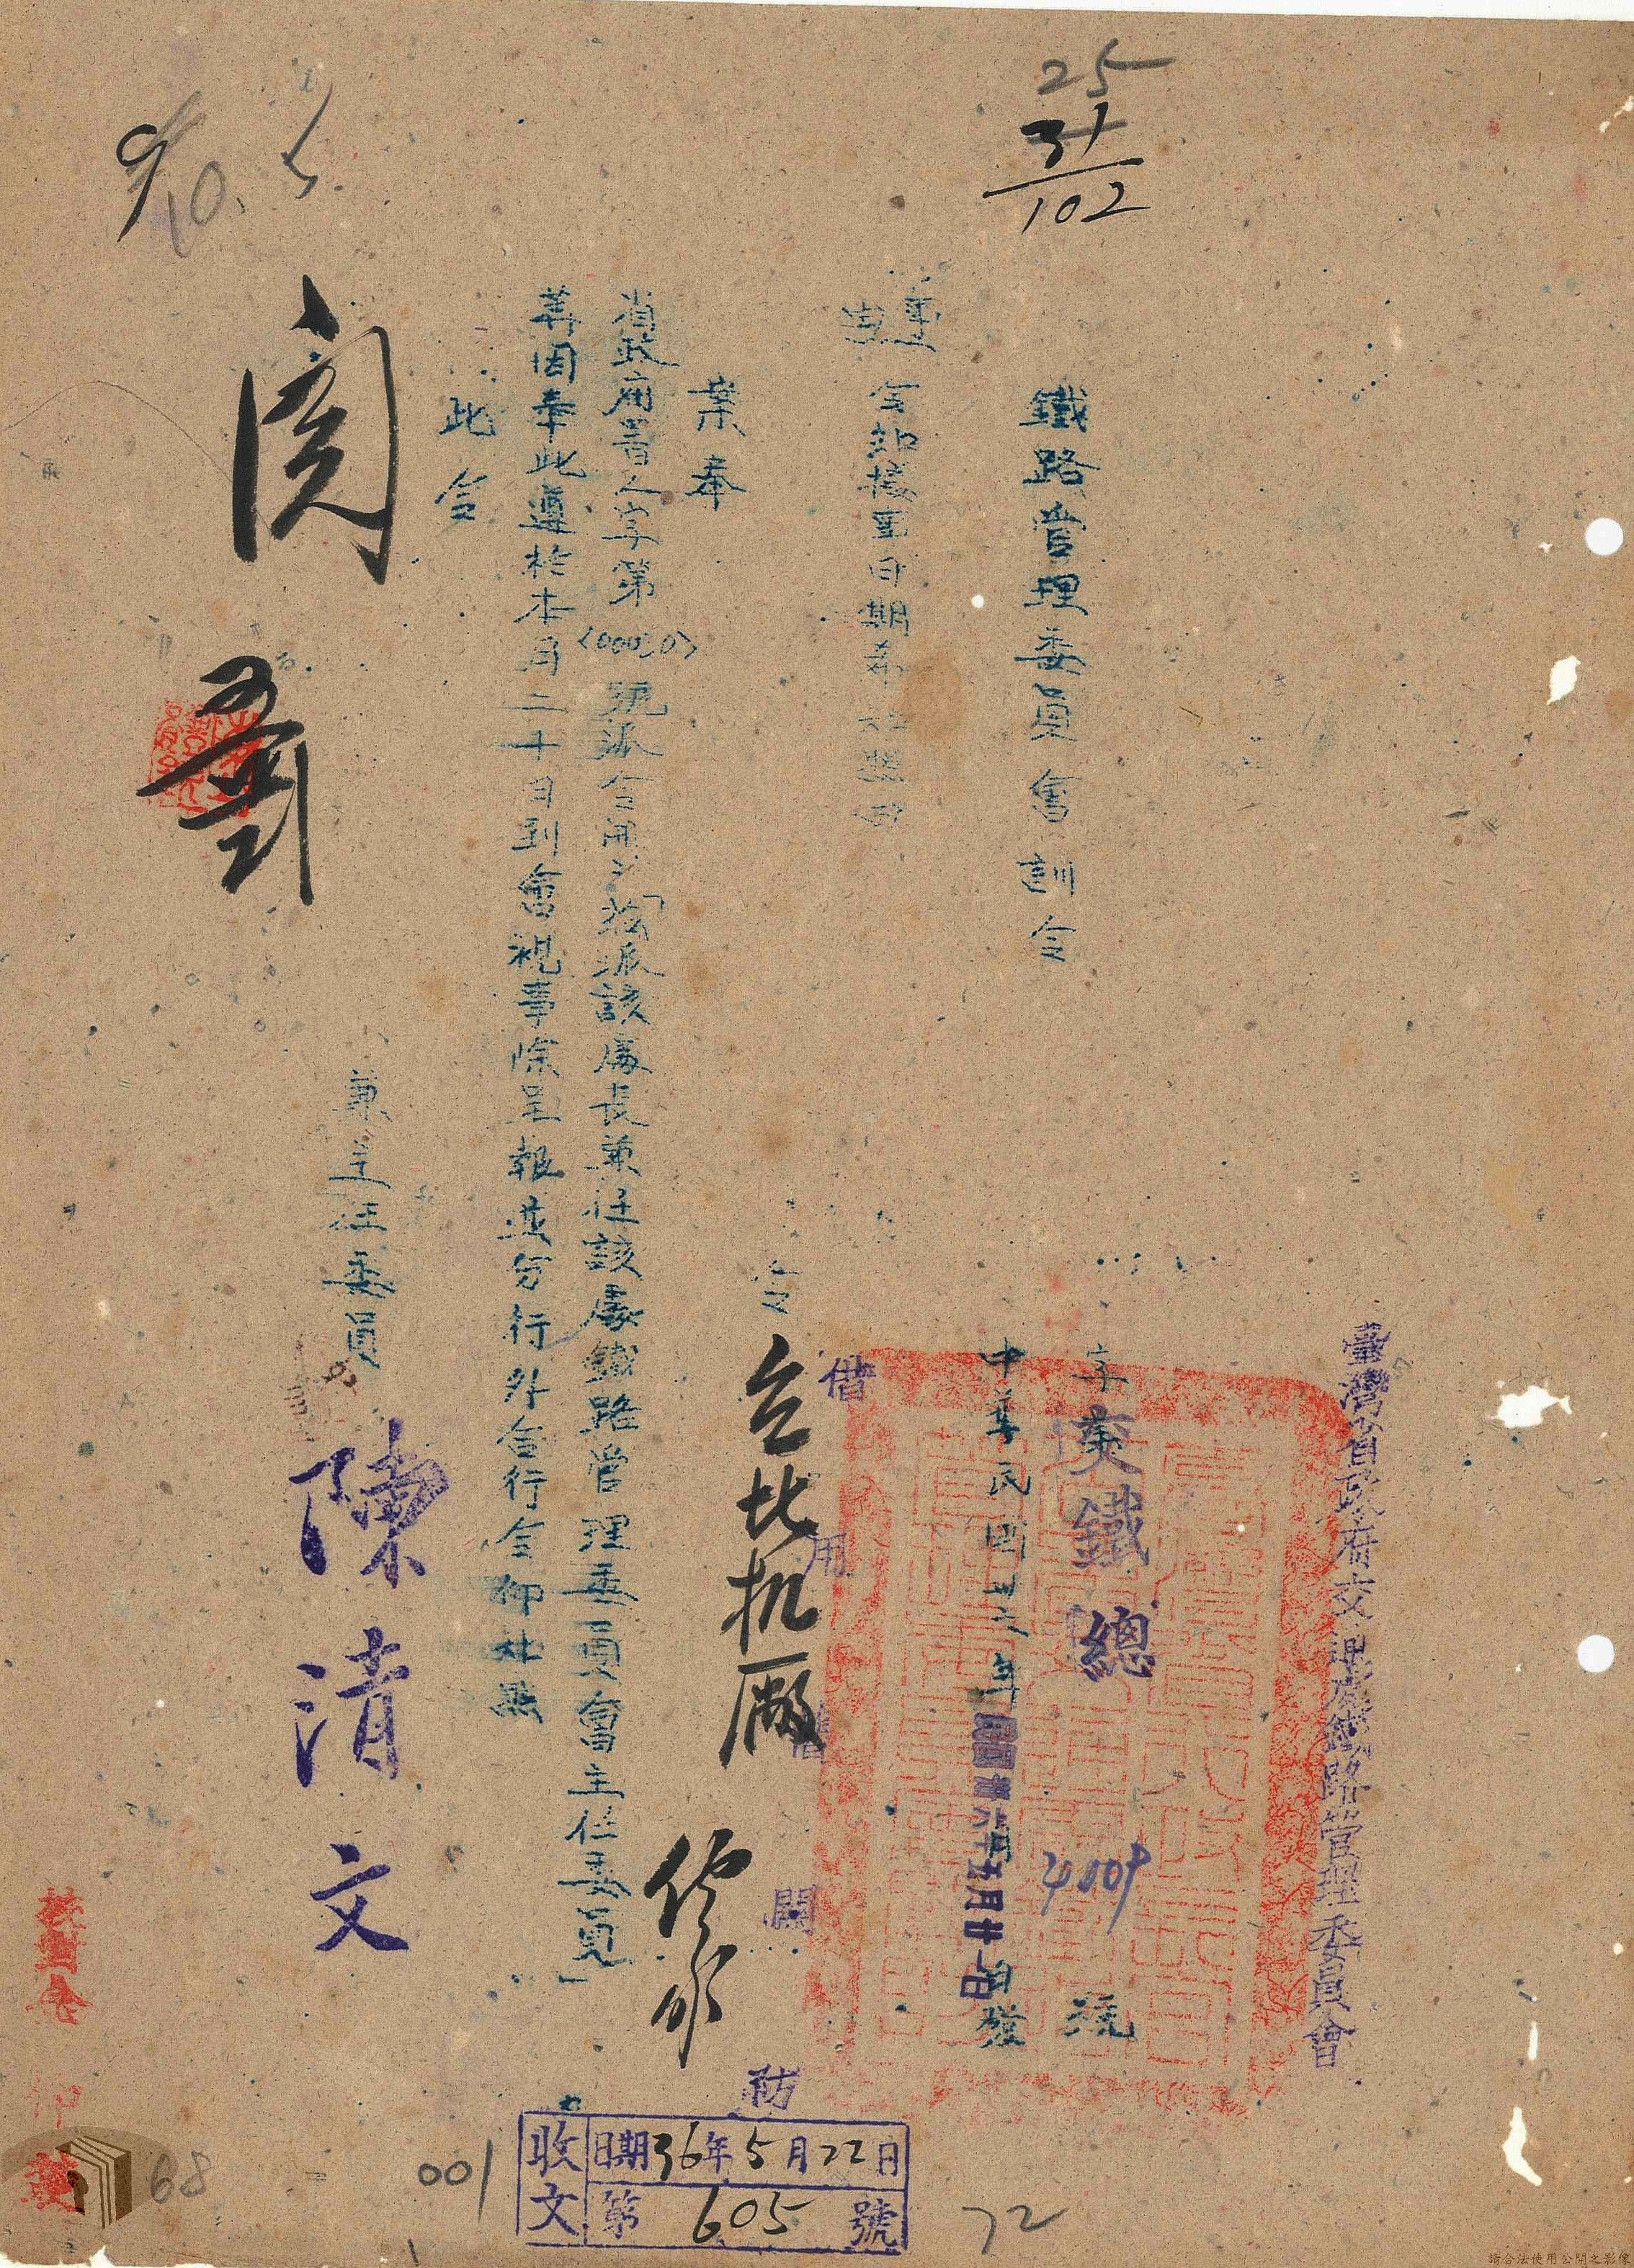 25
31
102
臺灣省政府交通處鐵路管理委員會
鐵路管理委員會訓令
字
鐵總
4009
號
中華民國
年
五月廿一日
發
令知接事日期
借用
關防
令
台北机廠
案奉
省政府
人字第
號派令開「茲派該處長兼任該處鐵路管理委員會主任委員」
等因奉此遵於本月二十日到會視事除呈報並分行外合行令仰知照
此令
兼主任委員
陳清文
閱
收文
日期36年5月22日
第605號
001
72
68
請合法使用公開之影像